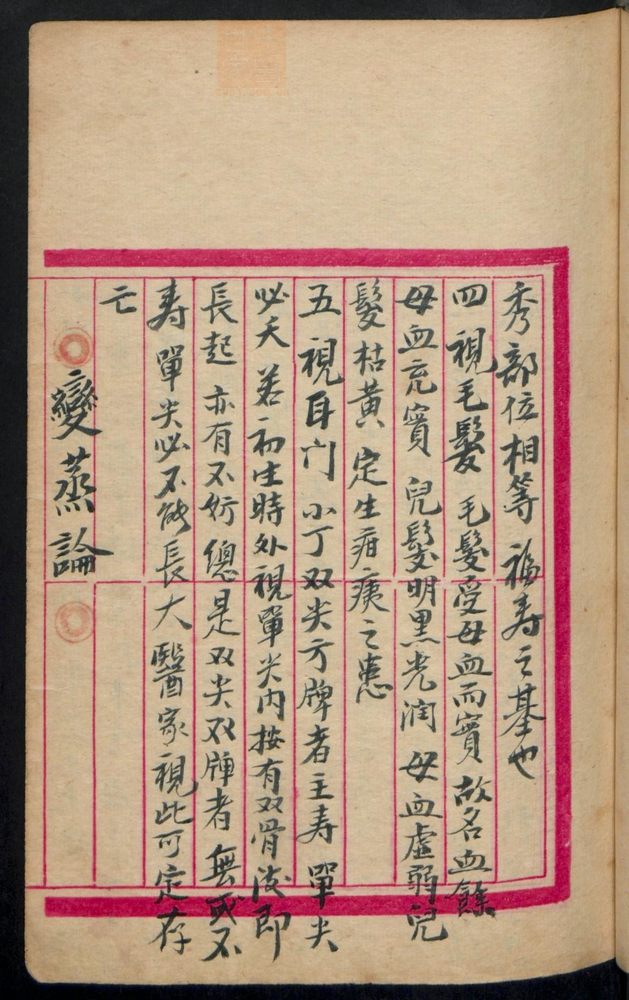 秀部位相等 福寿之基也
四 視毛髮 毛髮受母血而實 故名血餘
母血充實 兒髮明黑光润 母血虛弱兒
髮枯黃 定生疳痍之患
五 視耳门 小丁双尖方牌者主寿 單尖
必夭 若初生時外視單尖内按有双骨後即
長起 亦有不妨 總是双尖双牌者 無或不
寿 單尖必不能長大 醫家視此可定存
亡
變蒸論